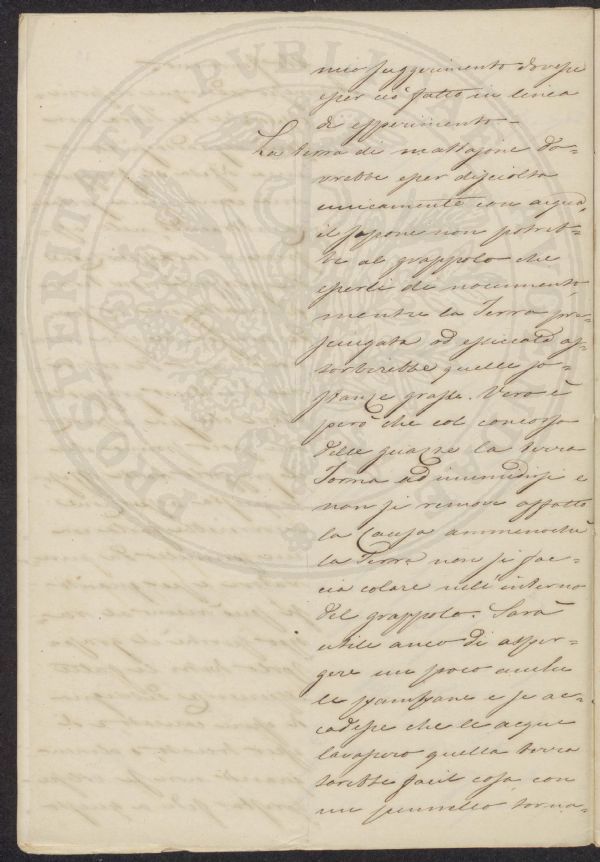 mio suggerimento dovesse
esser ciò fatto in linea
di esperimento –
La terra di mattajone do-
vrebbe esser disciolta
unicamente con acqua,
il sapone non potreb-
be al grappolo che
esserli di nocumento,
mentre la Terra pro-
sciugata ed essiccata as-
sorbirebbe quelle so-
stanze grasse. Vero è
però che col concorso
delle guazze la terra
torna ad inumidirsi e
non si remove affatto
la Causa ammenochè
la Terra non si fac-
cia colare nell'interno
del grappolo. Sarà
utile anco di asper-
gere un poco anche
le pampane e se ac-
cadesse che le acque
lavassero quella terra
sarebbe facil cosa con
un pennello torna-
PROSPERITATI PUBLICAE AUGENDAE